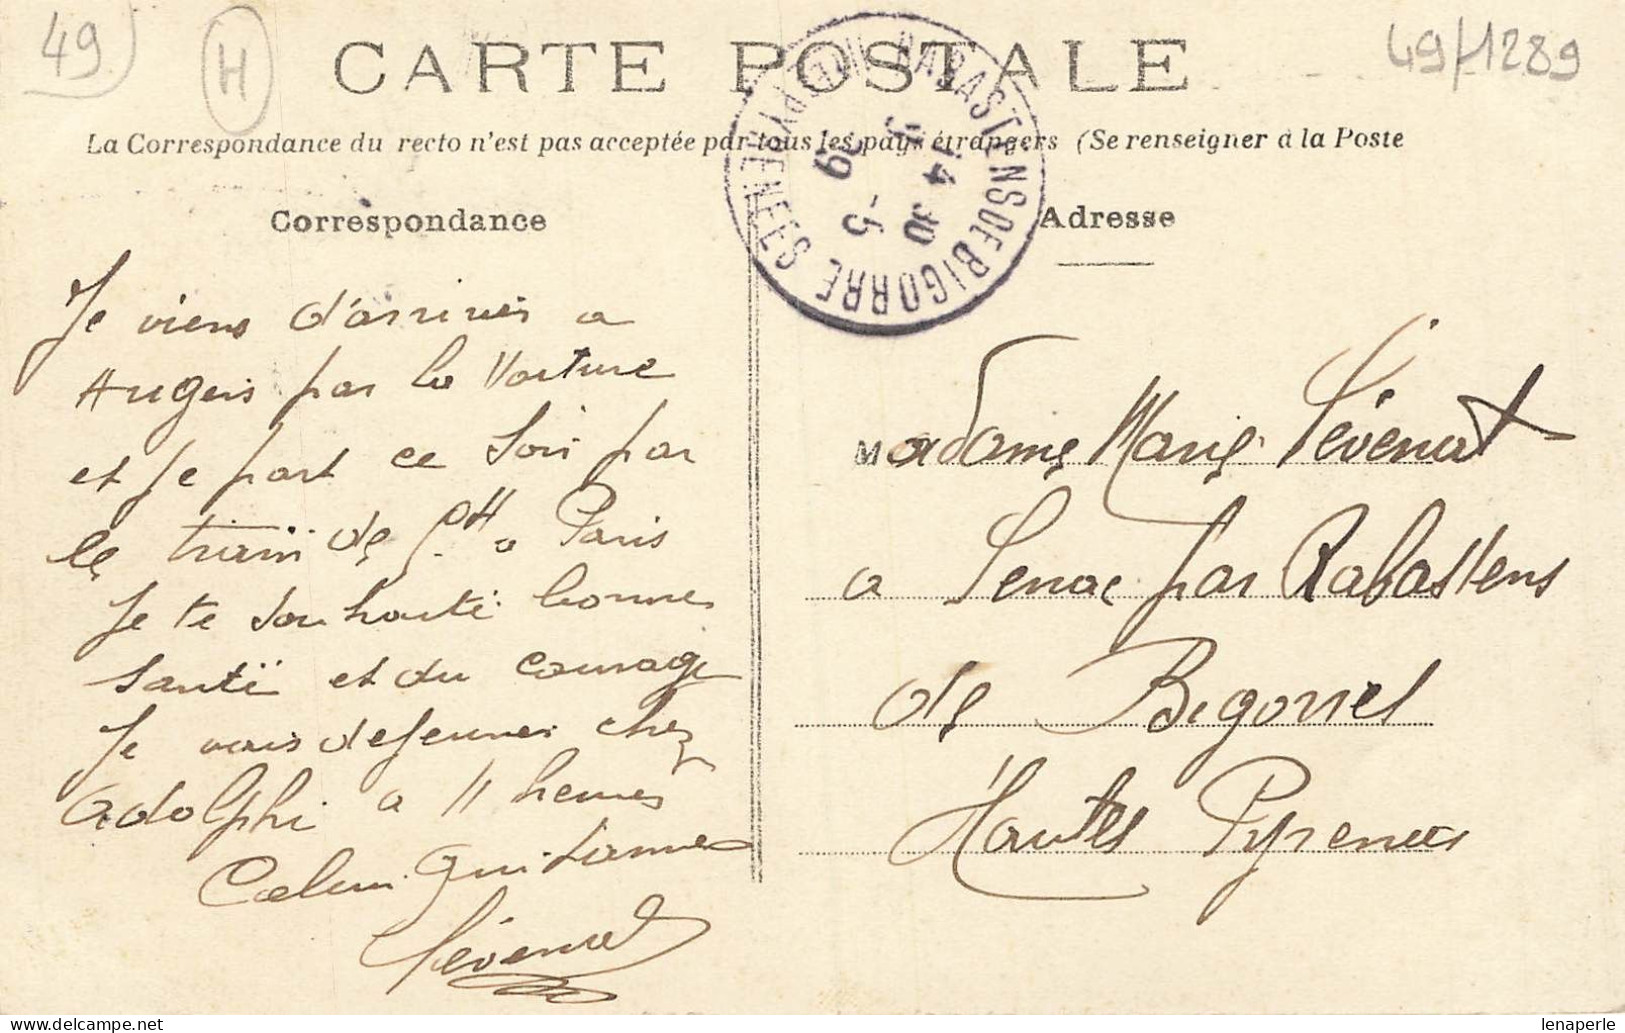 49
H
CARTE POSTALE
49/1289
La Correspondance du recto n'est pas acceptée par tous les pays étrangers (Se renseigner à la Poste
Correspondance
Adresse
RABASTENS DE BIGORRE
HTES PYRENEES
14 30
-5
Je viens d'arriver a
Angers par la Voiture
et je part ce Soir par
le train de 9H a Paris
Je te Souhaite bonne
Santé et du courage
Je vais dejeuner chez
Adolphe a 11 heures
Celui qui t'aime
Sévenat
Madame Marie Sévenat
a Senac par Rabastens
de Bigorre
Hautes Pyrenees
lenaperle